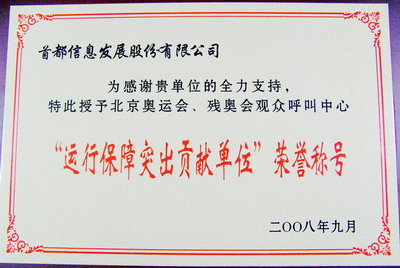 首都信息发展股份有限公司
为感谢贵单位的全力支持，
特此授予北京奥运会、残奥会观众呼叫中心
“运行保障突出贡献单位”荣誉称号
二〇〇八年九月